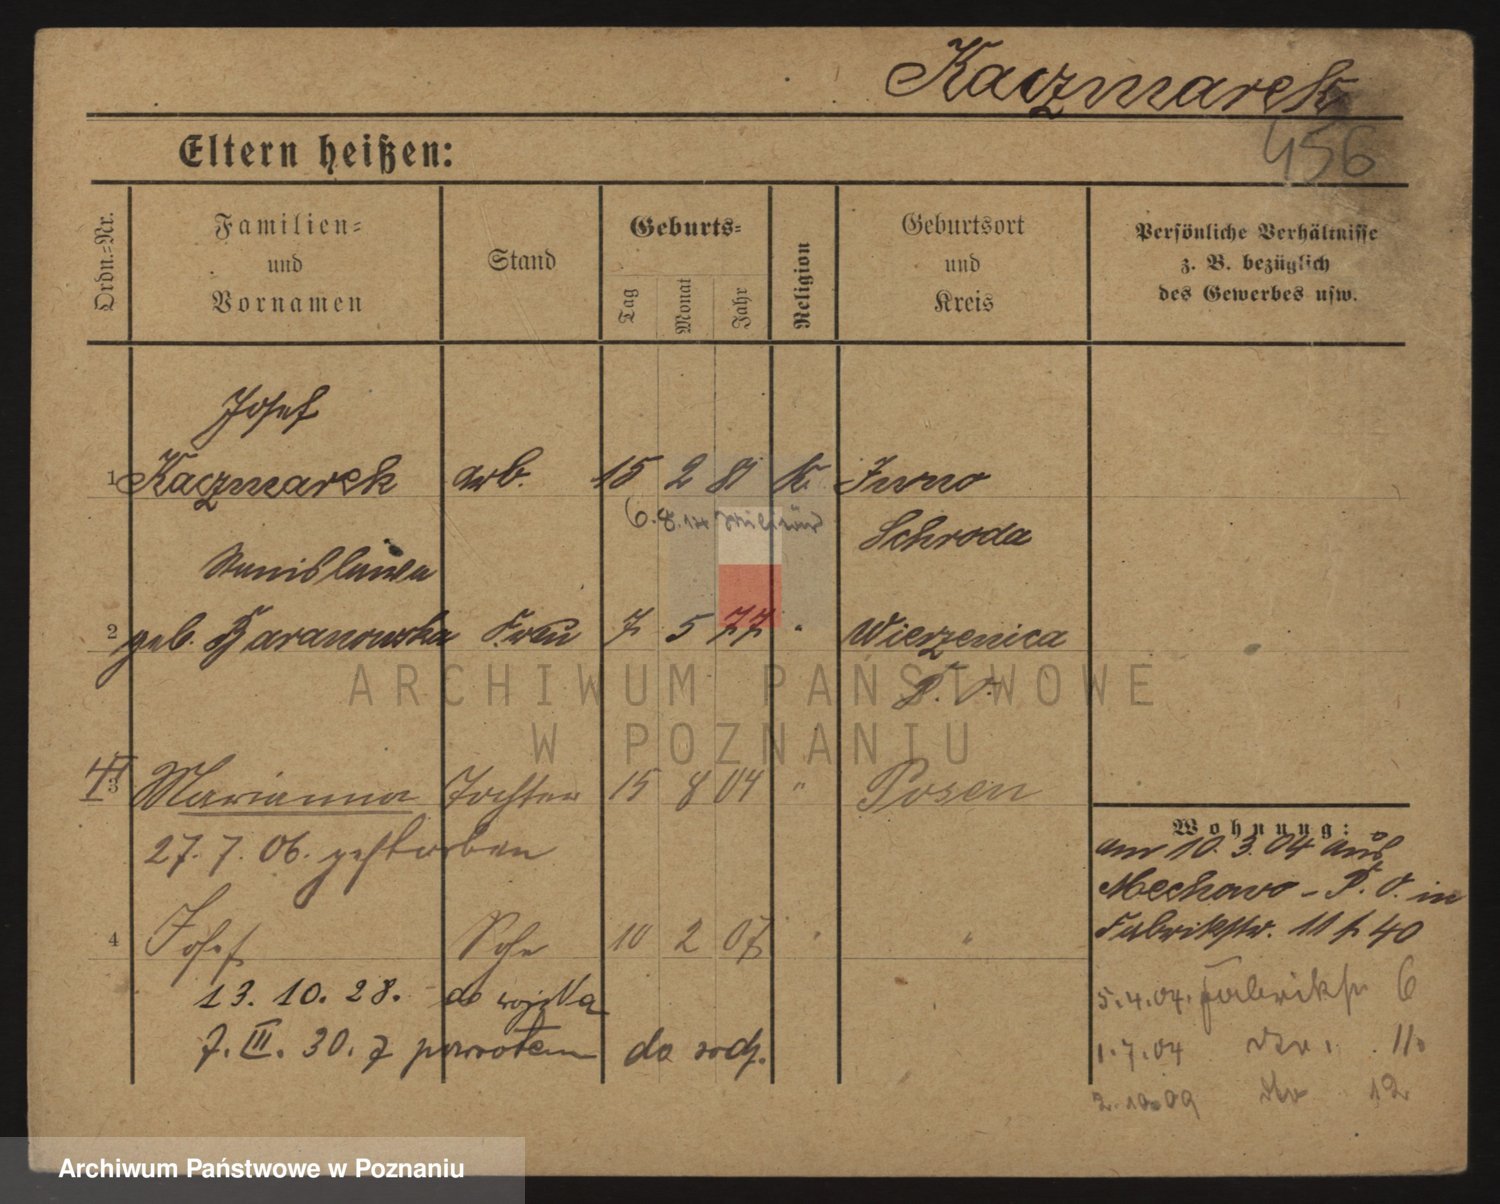 Kaczmarek
456
Eltern heißen:
Ordn.-Nr.
Familien- und Vornamen
Stand
Geburts-
Tag
Monat
Jahr
Religion
Geburtsort und Kreis
Persönliche Verhältnisse z. B. bezüglich des Gewerbes usw.
Josef
1 Kaczmarek arb. 15 2 81 K. Iwno
6.8.14 Militär
Schroda
Stanislawa
2 geb. Baranowska Frau 7 5 77 " Wierzenica
P. O.
3 Marianna Tochter 15 8 04 " Posen
27. 7. 06. gestorben
4 Josef Sohn 10 2 07 " "
13. 10. 28. do wojska
7. III. 30. z powrotem do rodz.
Wohnung:
am 10. 3. 04 aus
Mechowo - P. O. in
Fabrikstr. 11 b 40
5.4.04. Fabrikstr. 6
1.7.04 11
2.10.09 12
ARCHIWUM PAŃSTWOWE
W POZNANIU
Archiwum Państwowe w Poznaniu